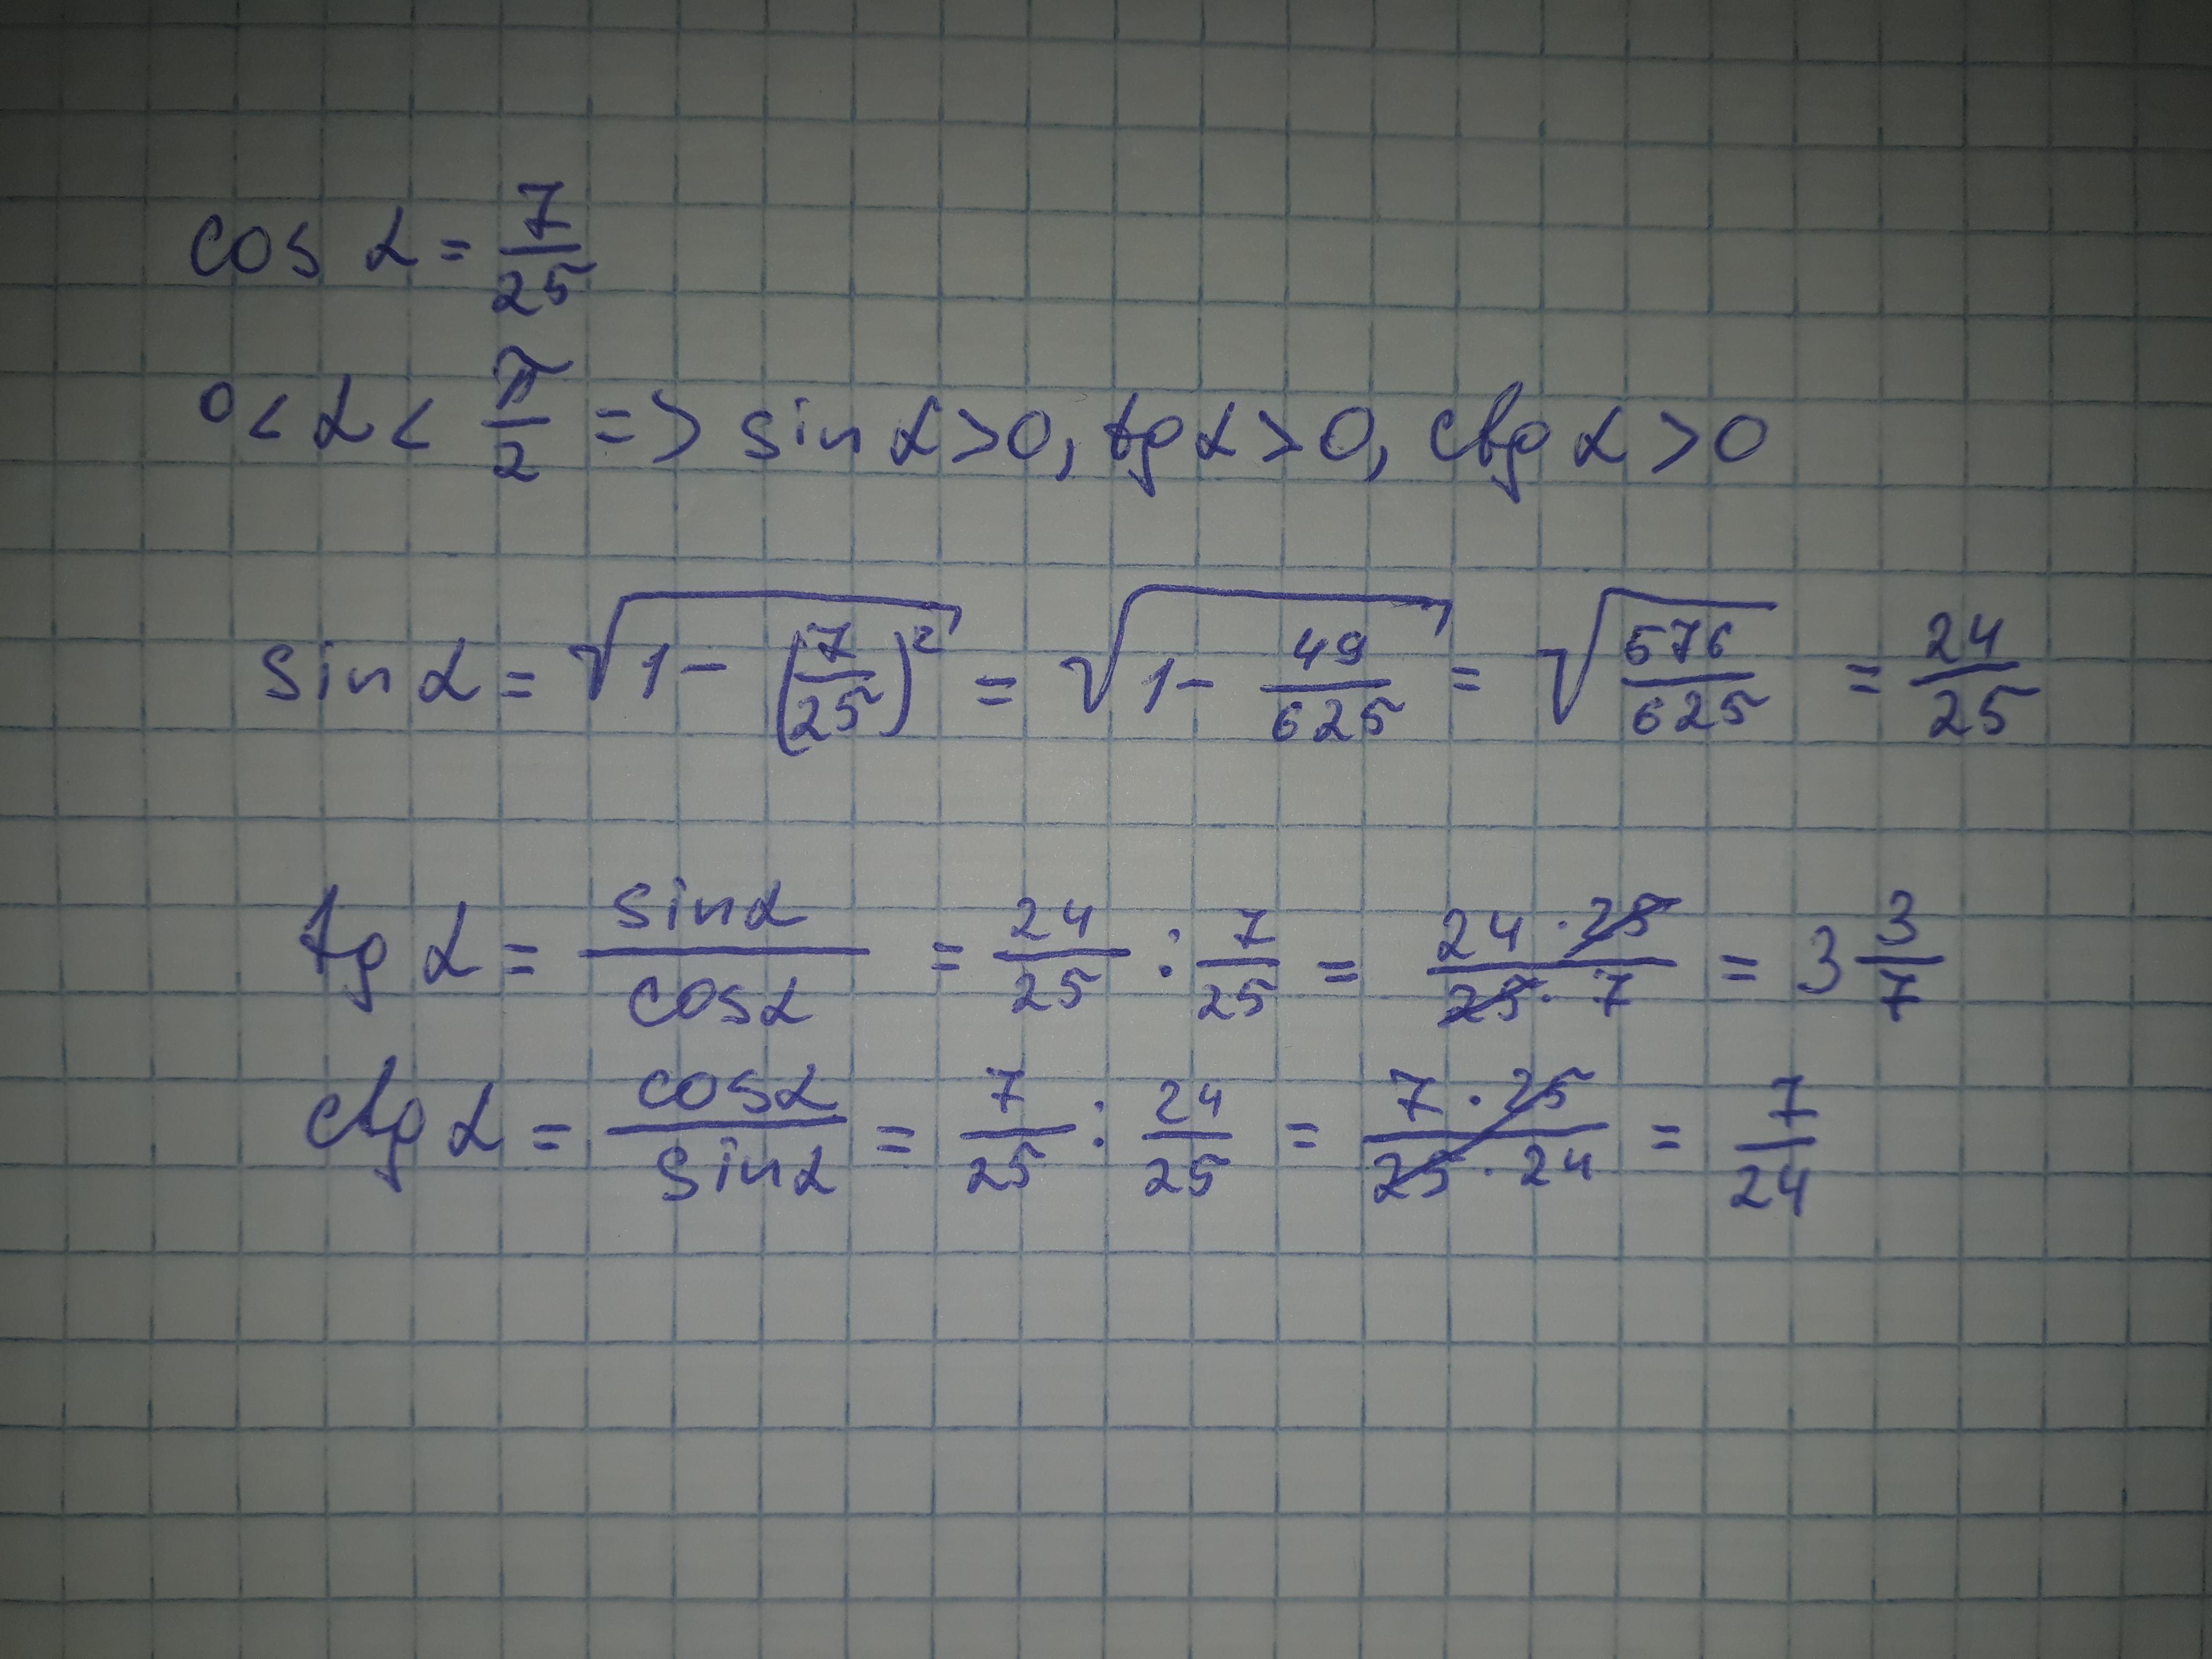 cos α = 7/25
0 < α < π/2 => sin α > 0, tg α > 0, ctg α > 0
sin α = √(1 - (7/25)²) = √(1 - 49/625) = √(576/625) = 24/25
tg α = sin α/cos α = 24/25 : 7/25 = 24 · 25/25 · 7 = 3 3/7
ctg α = cos α/sin α = 7/25 : 24/25 = 7 · 25/25 · 24 = 7/24